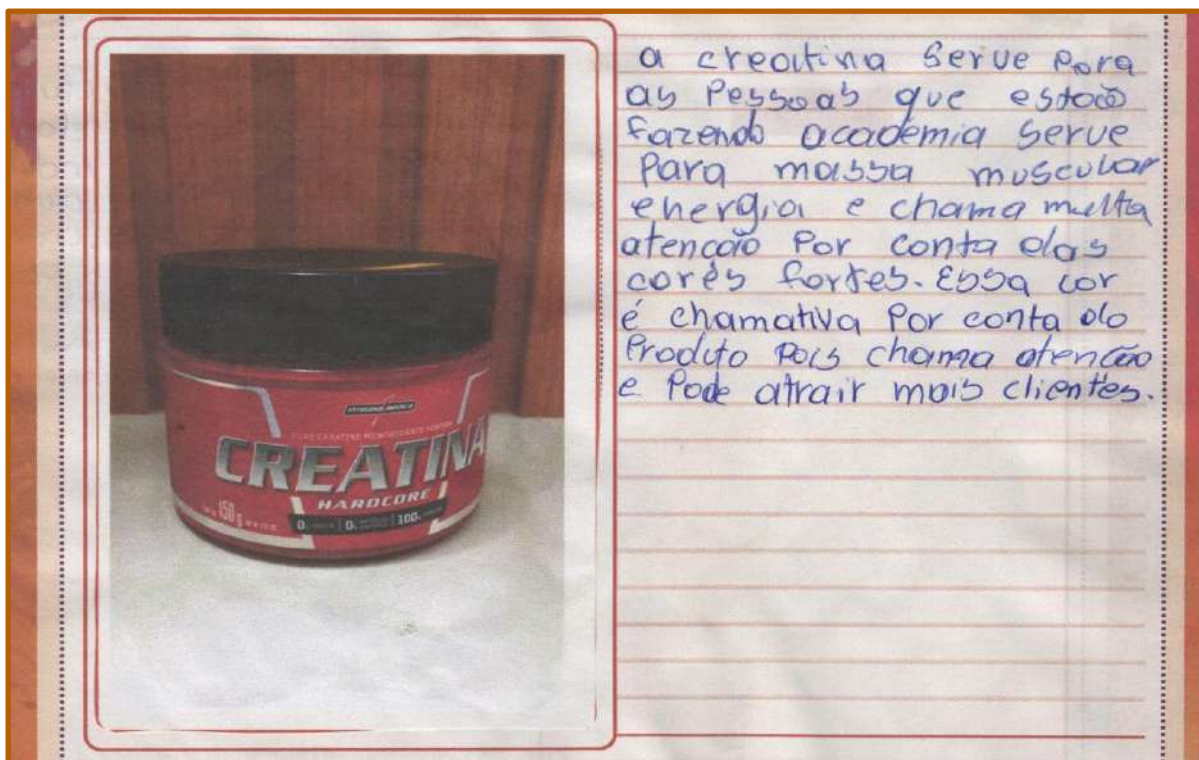 CREATINA
HARDCORE
150g
0% 0% 100%
a creatina serve para
as Pessoas que estão
fazendo academia serve
Para massa muscular
energia e chama muita
atenção Por conta das
cores fortes. Essa cor
é chamativa Por conta do
Produto Pois chama atenção
e Pode atrair mais clientes.